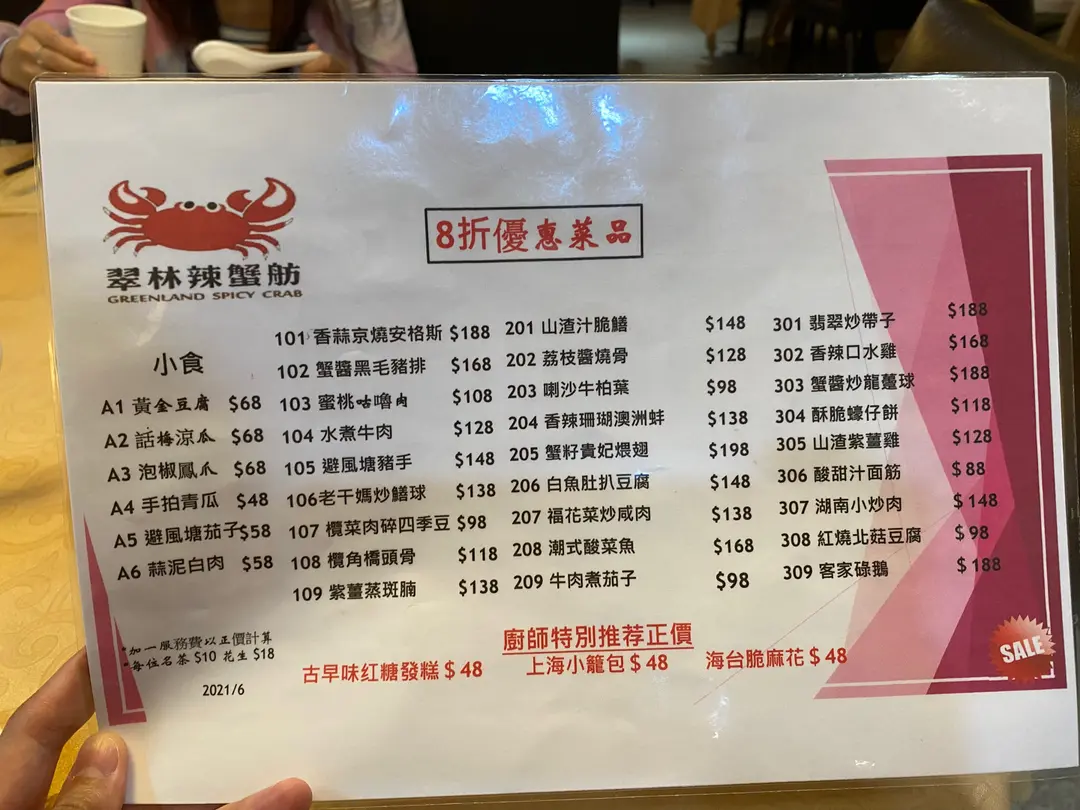 翠林辣蟹舫
GREENLAND SPICY CRAB
8折優惠菜品
小食
A1 黃金豆腐 $68
A2 話梅涼瓜 $68
A3 泡椒鳳爪 $68
A4 手拍青瓜 $48
A5 避風塘茄子 $58
A6 蒜泥白肉 $58
101 香蒜京燒安格斯 $188
102 蟹醬黑毛豬排 $168
103 蜜桃咕嚕肉 $108
104 水煮牛肉 $128
105 避風塘豬手 $148
106 老干媽炒鱔球 $138
107 欖菜肉碎四季豆 $98
108 欖角橋頭骨 $118
109 紫薑蒸斑腩 $138
201 山渣汁脆鱔 $148
202 荔枝醬燒骨 $128
203 喇沙牛柏葉 $98
204 香辣珊瑚澳洲蚌 $138
205 蟹籽貴妃煨翅 $198
206 白魚肚扒豆腐 $148
207 福花菜炒咸肉 $138
208 潮式酸菜魚 $168
209 牛肉煮茄子 $98
301 翡翠炒帶子 $188
302 香辣口水雞 $168
303 蟹醬炒龍躉球 $188
304 酥脆蠔仔餅 $118
305 山渣紫薑雞 $128
306 酸甜汁面筋 $88
307 湖南小炒肉 $148
308 紅燒北菇豆腐 $98
309 客家碌鵝 $188
*加一服務費以正價計算
*每位名茶 $10 花生 $18
2021/6
廚師特別推荐正價
古早味红糖發糕 $48
上海小籠包 $48
海台脆麻花 $48
SALE